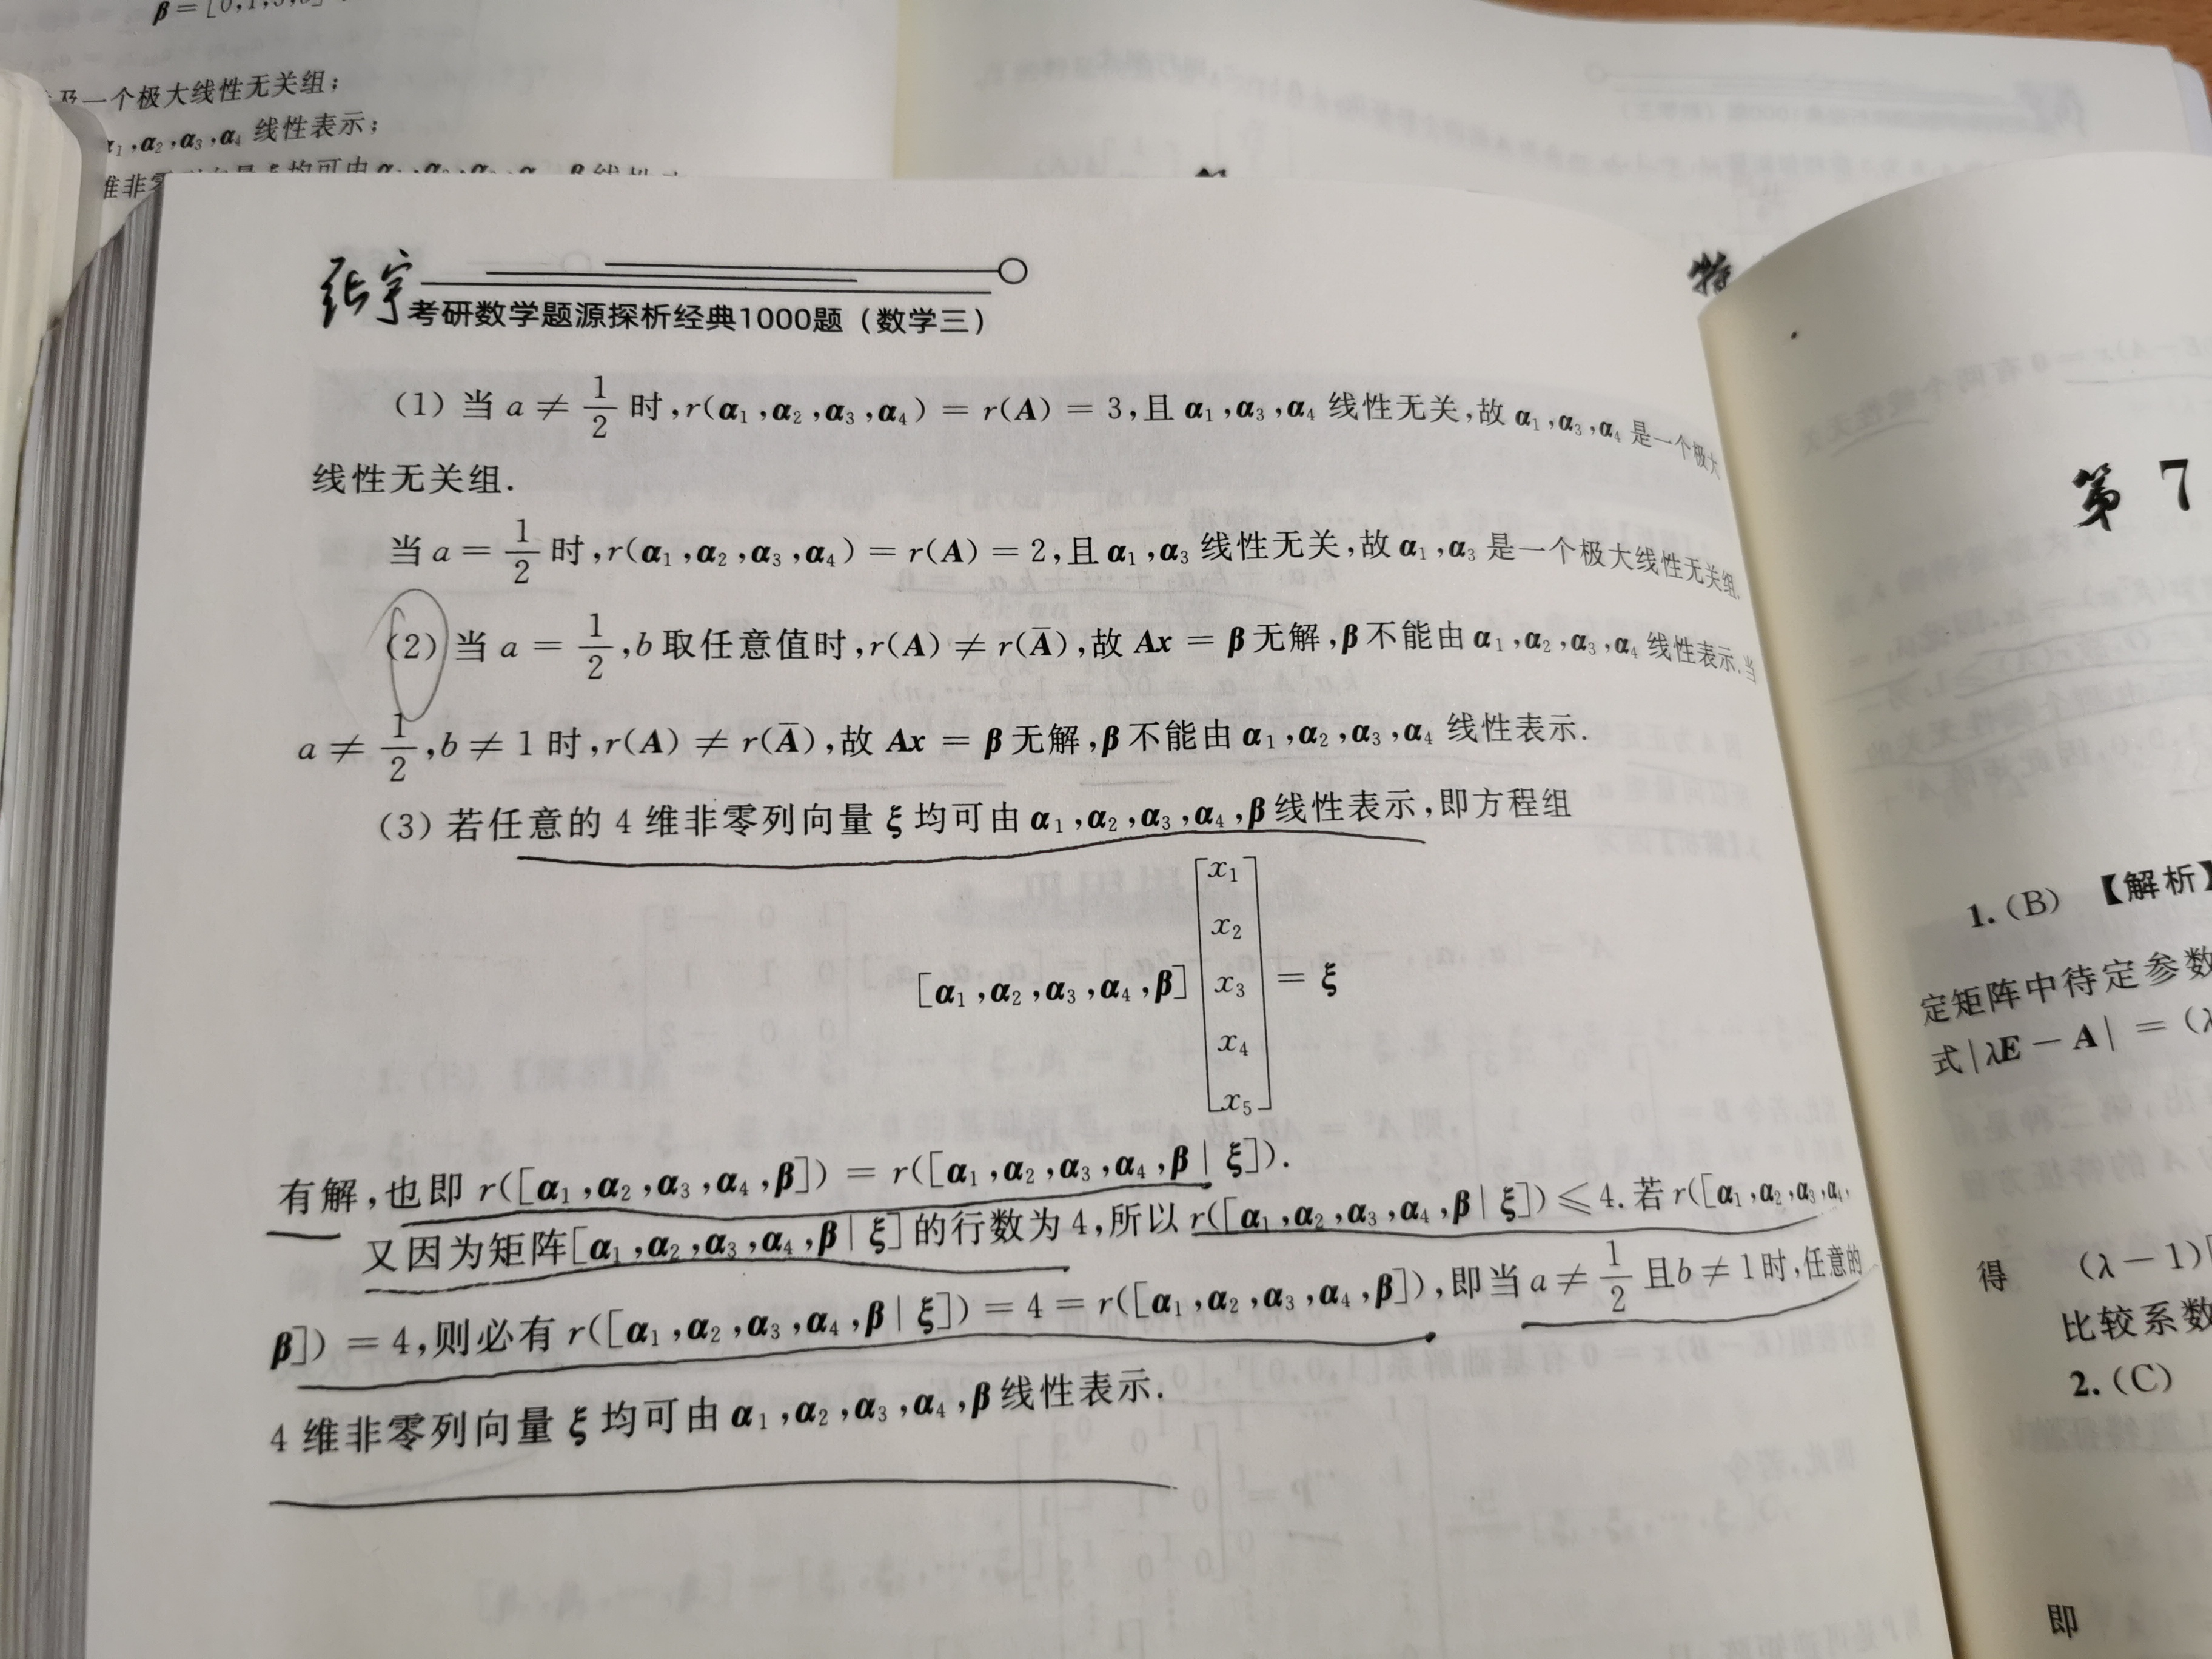 β = [0,1,3,
一个极大线性无关组;
α₁,α₂,α₃,α₄ 线性表示;
维非零
张宇
考研数学题源探析经典1000题(数学三)
(1) 当 a ≠ 1/2 时,r(α₁,α₂,α₃,α₄) = r(A) = 3,且 α₁,α₃,α₄ 线性无关,故 α₁,α₃,α₄ 是一个极大
线性无关组.
当 a = 1/2 时,r(α₁,α₂,α₃,α₄) = r(A) = 2,且 α₁,α₃ 线性无关,故 α₁,α₃ 是一个极大线性无关组.
(2) 当 a = 1/2,b 取任意值时,r(A) ≠ r(Ā),故 Ax = β 无解,β 不能由 α₁,α₂,α₃,α₄ 线性表示.当
a ≠ 1/2,b ≠ 1 时,r(A) ≠ r(Ā),故 Ax = β 无解,β 不能由 α₁,α₂,α₃,α₄ 线性表示.
(3) 若任意的 4 维非零列向量 ξ 均可由 α₁,α₂,α₃,α₄,β 线性表示,即方程组
[α₁,α₂,α₃,α₄,β] [x₁ x₂ x₃ x₄ x₅] = ξ
有解,也即 r([α₁,α₂,α₃,α₄,β]) = r([α₁,α₂,α₃,α₄,β | ξ]).
又因为矩阵[α₁,α₂,α₃,α₄,β | ξ]的行数为 4,所以 r([α₁,α₂,α₃,α₄,β | ξ]) ≤ 4.若 r([α₁,α₂,α₃,α₄,
β]) = 4,则必有 r([α₁,α₂,α₃,α₄,β | ξ]) = 4 = r([α₁,α₂,α₃,α₄,β]),即当 a ≠ 1/2 且 b ≠ 1 时,任意的
4 维非零列向量 ξ 均可由 α₁,α₂,α₃,α₄,β 线性表示.
第 7
1.(B) 【解析】
定矩阵中待定参数
式|λE − A| = (λ
得 (λ − 1)[
比较系数
2.(C)
即